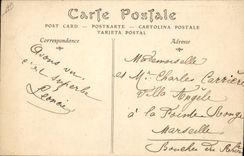 Carte Postale
POST CARD — POSTKARTE — CARTOLINA POSTALE
TARJETA POSTAL
Correspondance
Adresse
Avons vu
ciel superbe
Mademoiselle
et Mr Charles Carrière
Villa Angèle
à la Pointe Rouge
Marseille
Bouches du Rhône